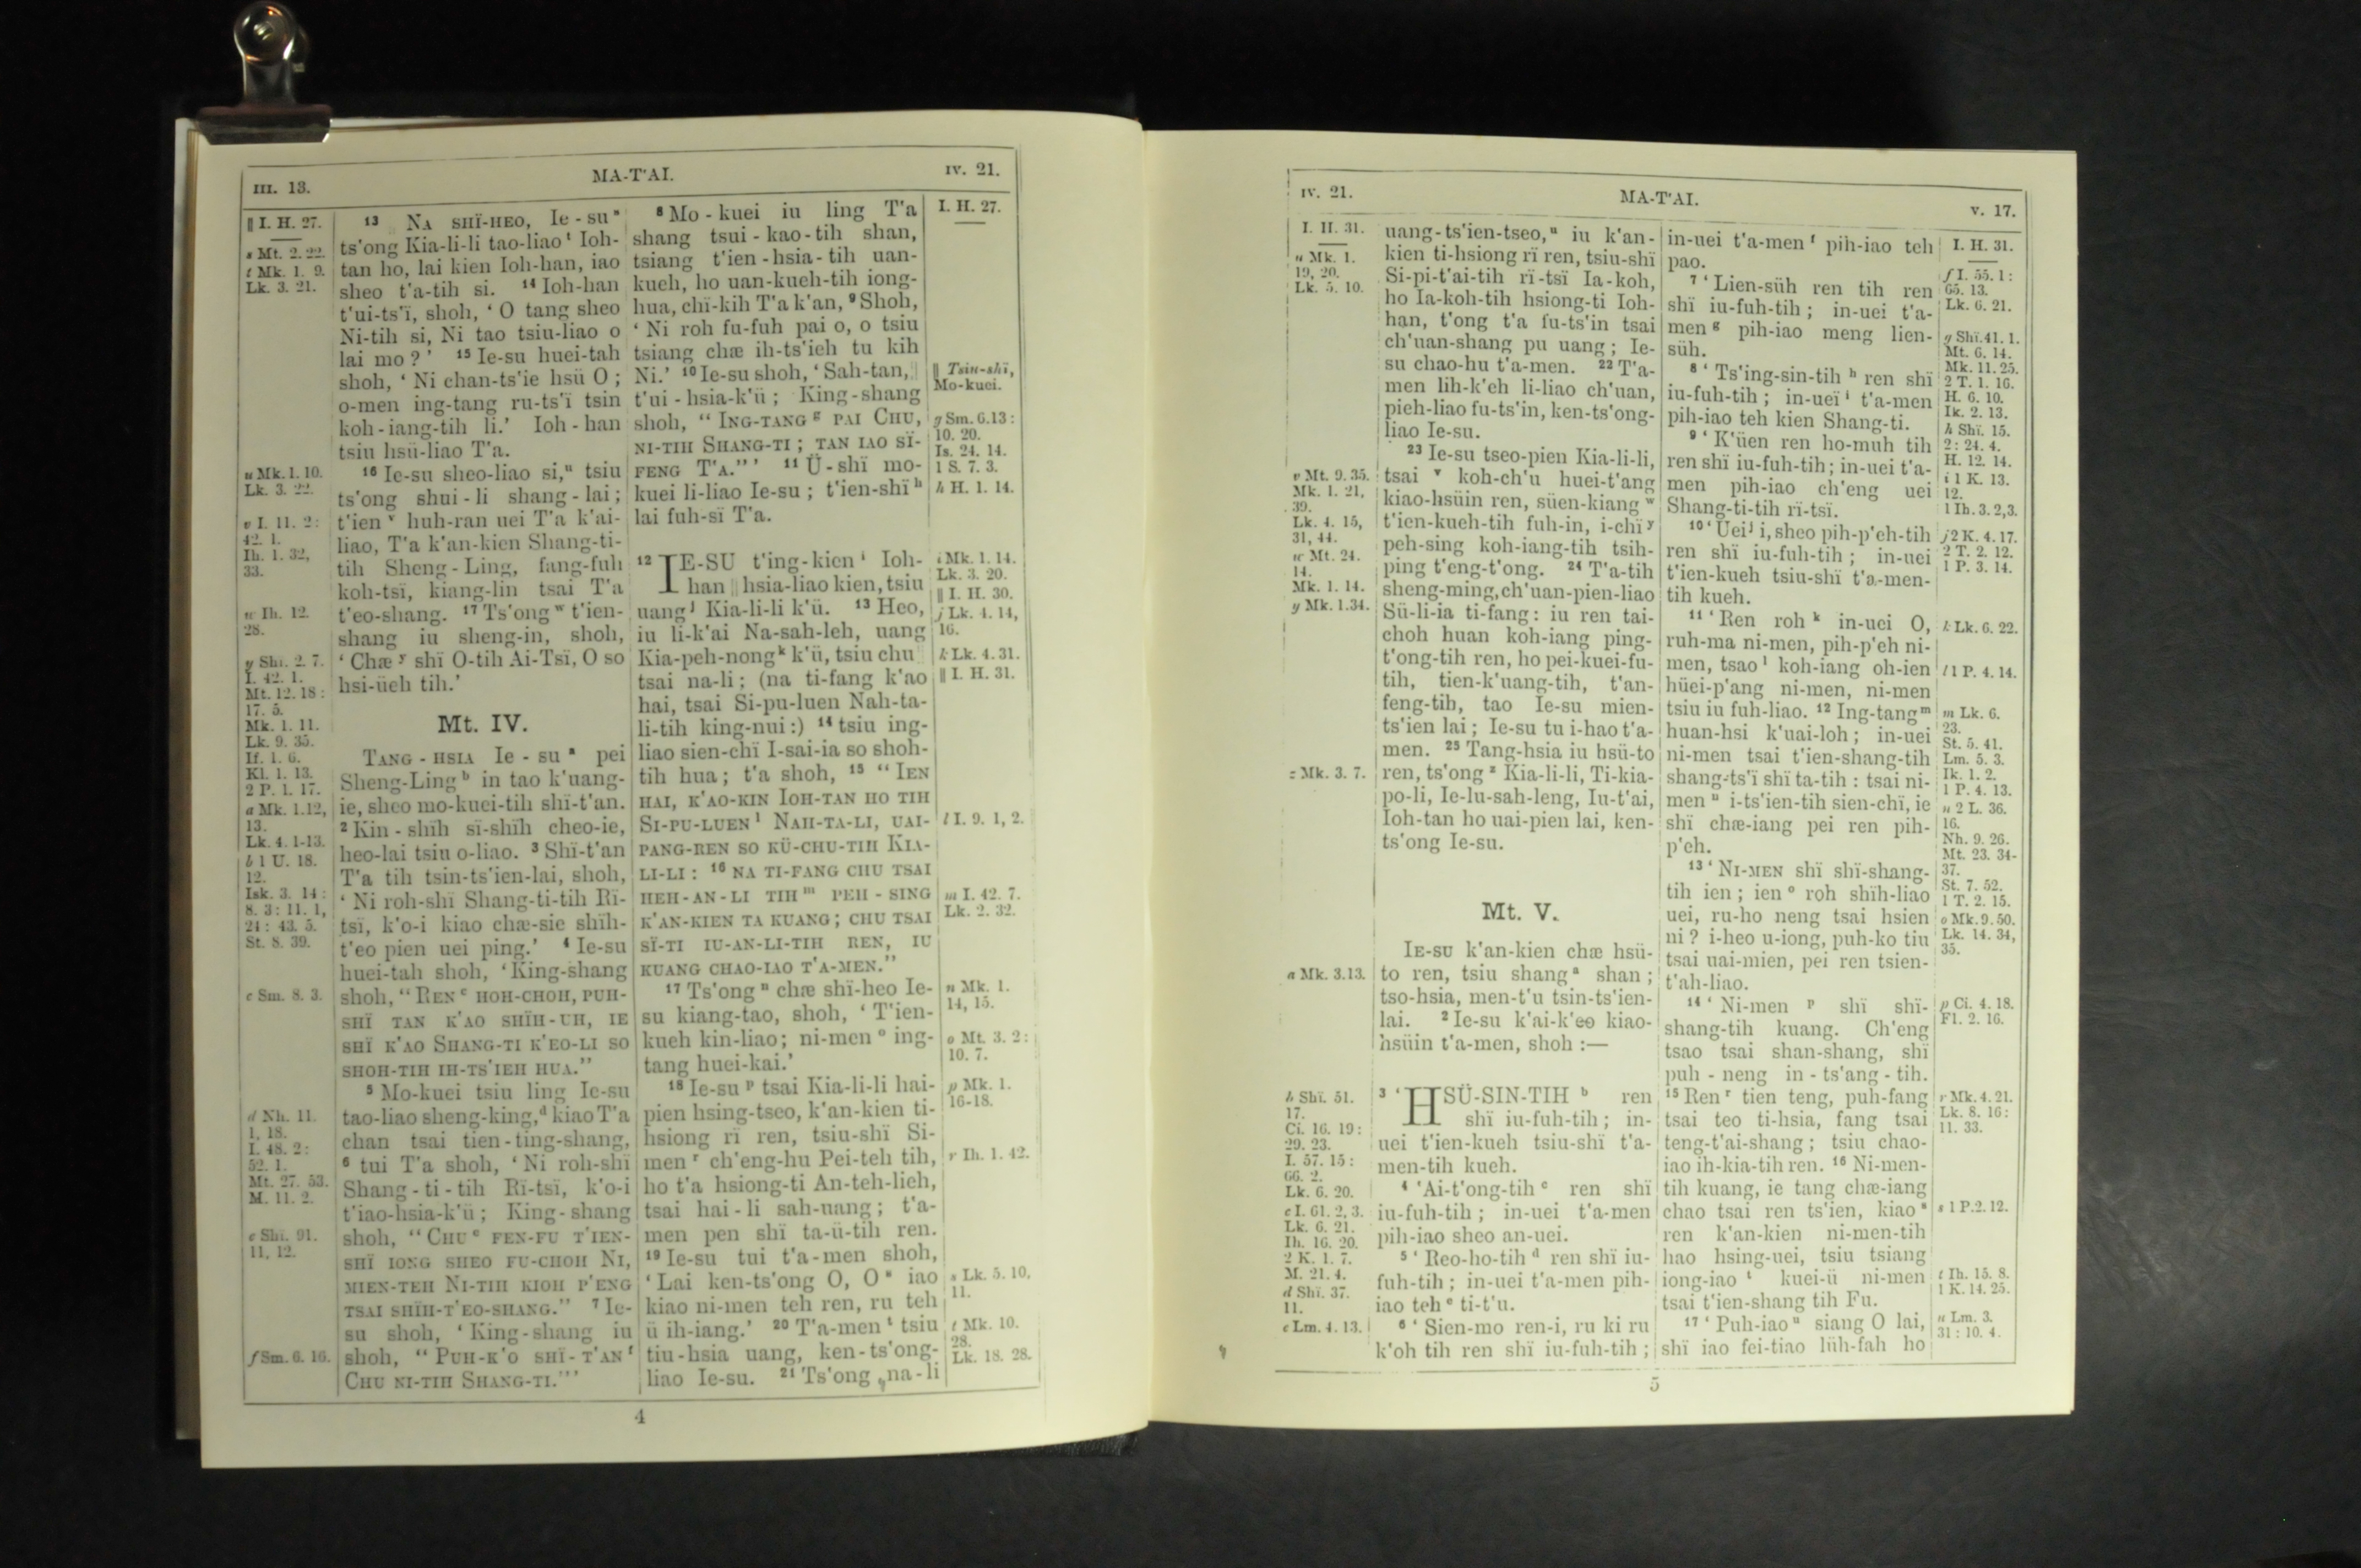 III. 13.
MA-T'AI.
IV. 21.
‖ I. H. 27.
s Mt. 2. 22.
t Mk. 1. 9.
Lk. 3. 21.
u Mk. 1. 10.
Lk. 3. 22.
v I. 11. 2:
42. 1.
Ih. 1. 32,
33.
w Ih. 12.
28.
y Shï. 2. 7.
I. 42. 1.
Mt. 12. 18:
17. 5.
Mk. 1. 11.
Lk. 9. 35.
If. 1. 6.
Kl. 1. 13.
2 P. 1. 17.
a Mk. 1.12,
13.
Lk. 4. 1-13.
b 1 U. 18.
12.
Isk. 3. 14:
8. 3: 11. 1,
24: 43. 5.
St. 8. 39.
c Sm. 8. 3.
d Nh. 11.
1, 18.
I. 48. 2:
52. 1.
Mt. 27. 53.
M. 11. 2.
e Shï. 91.
11, 12.
f Sm. 6. 16.
13 NA SHÏ-HEO, Ie-su s
ts'ong Kia-li-li tao-liao t Ioh-
tan ho, lai kien Ioh-han, iao
sheo t'a-tih si. 14 Ioh-han
t'ui-ts'ï, shoh, ‘ O tang sheo
Ni-tih si, Ni tao tsiu-liao o
lai mo ? ’ 15 Ie-su huei-tah
shoh, ‘ Ni chan-ts'ie hsü O ;
o-men ing-tang ru-ts'ï tsin
koh-iang-tih li.’ Ioh-han
tsiu hsü-liao T'a.
16 Ie-su sheo-liao si, u tsiu
ts'ong shui-li shang-lai ;
t'ien v huh-ran uei T'a k'ai-
liao, T'a k'an-kien Shang-ti-
tih Sheng-Ling, fang-fuh
koh-tsï, kiang-lin tsai T'a
t'eo-shang. 17 Ts'ong w t'ien-
shang iu sheng-in, shoh,
‘ Chæ y shï O-tih Ai-Tsï, O so
hsi-üeh tih.’
Mt. IV.
TANG-HSIA Ie-su a pei
Sheng-Ling b in tao k'uang-
ie, sheo mo-kuei-tih shï-t'an.
2 Kin-shïh sï-shïh cheo-ie,
heo-lai tsiu o-liao. 3 Shï-t'an
T'a tih tsin-ts'ien-lai, shoh,
‘ Ni roh-shï Shang-ti-tih Rï-
tsï, k'o-i kiao chæ-sie shïh-
t'eo pien uei ping.’ 4 Ie-su
huei-tah shoh, ‘ King-shang
shoh, “ REN c HOH-CHOH, PUH-
SHÏ TAN K'AO SHÏH-UH, IE
SHÏ K'AO SHANG-TI K'EO-LI SO
SHOH-TIH IH-TS'IEH HUA.”
5 Mo-kuei tsiu ling Ie-su
tao-liao sheng-king, d kiao T'a
chan tsai tien-ting-shang,
6 tui T'a shoh, ‘ Ni roh-shï
Shang-ti-tih Rï-tsï, k'o-i
t'iao-hsia-k'ü ; King-shang
shoh, “ CHU e FEN-FU T'IEN-
SHÏ IONG SHEO FU-CHOH NI,
MIEN-TEH NI-TIH KIOH P'ENG
TSAI SHÏH-T'EO-SHANG.” 7 Ie-
su shoh, ‘ King-shang iu
shoh, “ PUH-K'O SHÏ-T'AN f
CHU NI-TIH SHANG-TI.” ’
8 Mo-kuei iu ling T'a
shang tsui-kao-tih shan,
tsiang t'ien-hsia-tih uan-
kueh, ho uan-kueh-tih iong-
hua, chï-kih T'a k'an, 9 Shoh,
‘ Ni roh fu-fuh pai o, o tsiu
tsiang chæ ih-ts'ieh tu kih
Ni.’ 10 Ie-su shoh, ‘ Sah-tan, ‖
t'ui-hsia-k'ü ; King-shang
shoh, “ ING-TANG g PAI CHU,
NI-TIH SHANG-TI ; TAN IAO SÏ-
FENG T'A.” ’ 11 Ü-shï mo-
kuei li-liao Ie-su ; t'ien-shï h
lai fuh-sï T'a.
12 IE-SU t'ing-kien i Ioh-
han ‖ hsia-liao kien, tsiu
uang j Kia-li-li k'ü. 13 Heo,
iu li-k'ai Na-sah-leh, uang
Kia-peh-nong k k'ü, tsiu chu ‖
tsai na-li ; (na ti-fang k'ao
hai, tsai Si-pu-luen Nah-ta-
li-tih king-nui :) 14 tsiu ing-
liao sien-chï I-sai-ia so shoh-
tih hua ; t'a shoh, 15 “ IEN
HAI, K'AO-KIN IOH-TAN HO TIH
SI-PU-LUEN l NAH-TA-LI, UAI-
PANG-REN SO KÜ-CHU-TIH KIA-
LI-LI : 16 NA TI-FANG CHU TSAI
HEH-AN-LI TIH m PEH-SING
K'AN-KIEN TA KUANG ; CHU TSAI
SÏ-TI IU-AN-LI-TIH REN, IU
KUANG CHAO-IAO T'A-MEN.”
17 Ts'ong n chæ shï-heo Ie-
su kiang-tao, shoh, ‘ T'ien-
kueh kin-liao ; ni-men o ing-
tang huei-kai.’
18 Ie-su p tsai Kia-li-li hai-
pien hsing-tseo, k'an-kien ti-
hsiong rï ren, tsiu-shï Si-
men r ch'eng-hu Pei-teh tih,
ho t'a hsiong-ti An-teh-lieh,
tsai hai-li sah-uang ; t'a-
men pen shï ta-ü-tih ren.
19 Ie-su tui t'a-men shoh,
‘ Lai ken-ts'ong O, O s iao
kiao ni-men teh ren, ru teh
ü ih-iang.’ 20 T'a-men t tsiu
tiu-hsia uang, ken-ts'ong-
liao Ie-su. 21 Ts'ong na-li
I. H. 27.
‖ Tsiu-shï,
Mo-kuei.
g Sm. 6.13:
10. 20.
Is. 24. 14.
1 S. 7. 3.
h H. 1. 14.
i Mk. 1. 14.
Lk. 3. 20.
‖ I. H. 30.
j Lk. 4. 14,
16.
k Lk. 4. 31.
‖ I. H. 31.
l I. 9. 1, 2.
m I. 42. 7.
Lk. 2. 32.
n Mk. 1.
14, 15.
o Mt. 3. 2:
10. 7.
p Mk. 1.
16-18.
r Ih. 1. 42.
s Lk. 5. 10,
11.
t Mk. 10.
28.
Lk. 18. 28.
4
IV. 21.
MA-T'AI.
V. 17.
I. H. 31.
u Mk. 1.
19, 20.
Lk. 5. 10.
v Mt. 9. 35.
Mk. 1. 21,
39.
Lk. 4. 15,
31, 44.
w Mt. 24.
14.
Mk. 1. 14.
y Mk. 1.34.
z Mk. 3. 7.
a Mk. 3.13.
b Shï. 51.
17.
Ci. 16. 19:
29. 23.
I. 57. 15:
66. 2.
Lk. 6. 20.
c I. 61. 2, 3.
Lk. 6. 21.
Ih. 16. 20.
2 K. 1. 7.
M. 21. 4.
d Shï. 37.
11.
e Lm. 4. 13.
uang-ts'ien-tseo, u iu k'an-
kien ti-hsiong rï ren, tsiu-shï
Si-pi-t'ai-tih rï-tsï Ia-koh,
ho Ia-koh-tih hsiong-ti Ioh-
han, t'ong t'a fu-ts'in tsai
ch'uan-shang pu uang ; Ie-
su chao-hu t'a-men. 22 T'a-
men lih-k'eh li-liao ch'uan,
pieh-liao fu-ts'in, ken-ts'ong-
liao Ie-su.
23 Ie-su tseo-pien Kia-li-li,
tsai v koh-ch'u huei-t'ang
kiao-hsüin ren, süen-kiang w
t'ien-kueh-tih fuh-in, i-chï y
peh-sing koh-iang-tih tsih-
ping t'eng-t'ong. 24 T'a-tih
sheng-ming, ch'uan-pien-liao
Sü-li-ia ti-fang : iu ren tai-
choh huan koh-iang ping-
t'ong-tih ren, ho pei-kuei-fu-
tih, tien-k'uang-tih, t'an-
feng-tih, tao Ie-su mien-
ts'ien lai ; Ie-su tu i-hao t'a-
men. 25 Tang-hsia iu hsü-to
ren, ts'ong z Kia-li-li, Ti-kia-
po-li, Ie-lu-sah-leng, Iu-t'ai,
Ioh-tan ho uai-pien lai, ken-
ts'ong Ie-su.
Mt. V.
IE-SU k'an-kien chæ hsü-
to ren, tsiu shang a shan ;
tso-hsia, men-t'u tsin-ts'ien-
lai. 2 Ie-su k'ai-k'eo kiao-
hsüin t'a-men, shoh :—
3 ‘ HSÜ-SIN-TIH b ren
shï iu-fuh-tih ; in-
uei t'ien-kueh tsiu-shï t'a-
men-tih kueh.
4 ‘ Ai-t'ong-tih c ren shï
iu-fuh-tih ; in-uei t'a-men
pih-iao sheo an-uei.
5 ‘ Reo-ho-tih d ren shï iu-
fuh-tih ; in-uei t'a-men pih-
iao teh e ti-t'u.
6 ‘ Sien-mo ren-i, ru ki ru
k'oh tih ren shï iu-fuh-tih ;
in-uei t'a-men f pih-iao teh
pao.
7 ‘ Lien-süh ren tih ren
shï iu-fuh-tih ; in-uei t'a-
men g pih-iao meng lien-
süh.
8 ‘ Ts'ing-sin-tih h ren shï
iu-fuh-tih ; in-ueï i t'a-men
pih-iao teh kien Shang-ti.
9 ‘ K'üen ren ho-muh tih
ren shï iu-fuh-tih ; in-uei t'a-
men pih-iao ch'eng uei
Shang-ti-tih rï-tsï.
10 ‘ Uei j i, sheo pih-p'eh-tih
ren shï iu-fuh-tih ; in-uei
t'ien-kueh tsiu-shï t'a-men-
tih kueh.
11 ‘ Ren roh k in-uei O,
ruh-ma ni-men, pih-p'eh ni-
men, tsao l koh-iang oh-ien
hüei-p'ang ni-men, ni-men
tsiu iu fuh-liao. 12 Ing-tang m
huan-hsi k'uai-loh ; in-uei
ni-men tsai t'ien-shang-tih
shang-ts'ï shï ta-tih : tsai ni-
men n i-ts'ien-tih sien-chï, ie
shï chæ-iang pei ren pih-
p'eh.
13 ‘ NI-MEN shï shï-shang-
tih ien ; ien o roh shïh-liao
uei, ru-ho neng tsai hsien
ni ? i-heo u-iong, puh-ko tiu
tsai uai-mien, pei ren tsien-
t'ah-liao.
14 ‘ Ni-men p shï shï-
shang-tih kuang. Ch'eng
tsao tsai shan-shang, shï
puh-neng in-ts'ang-tih.
15 Ren r tien teng, puh-fang
tsai teo ti-hsia, fang tsai
teng-t'ai-shang ; tsiu chao-
iao ih-kia-tih ren. 16 Ni-men-
tih kuang, ie tang chæ-iang
chao tsai ren ts'ien, kiao s
ren k'an-kien ni-men-tih
hao hsing-uei, tsiu tsiang
iong-iao t kuei-ü ni-men
tsai t'ien-shang tih Fu.
17 ‘ Puh-iao u siang O lai,
shï iao fei-tiao lüh-fah ho
I. H. 31.
f I. 55. 1:
65. 13.
Lk. 6. 21.
g Shï. 41. 1.
Mt. 6. 14.
Mk. 11. 25.
2 T. 1. 16.
H. 6. 10.
Ik. 2. 13.
h Shï. 15.
2: 24. 4.
H. 12. 14.
i 1 K. 13.
12.
1 Ih. 3. 2,3.
j 2 K. 4. 17.
2 T. 2. 12.
1 P. 3. 14.
k Lk. 6. 22.
l 1 P. 4. 14.
m Lk. 6.
23.
St. 5. 41.
Lm. 5. 3.
Ik. 1. 2.
1 P. 4. 13.
n 2 L. 36.
16.
Nh. 9. 26.
Mt. 23. 34-
37.
St. 7. 52.
1 T. 2. 15.
o Mk. 9. 50.
Lk. 14. 34,
35.
p Ci. 4. 18.
Fl. 2. 16.
r Mk. 4. 21.
Lk. 8. 16:
11. 33.
s 1 P. 2. 12.
t Ih. 15. 8.
1 K. 14. 25.
u Lm. 3.
31: 10. 4.
5